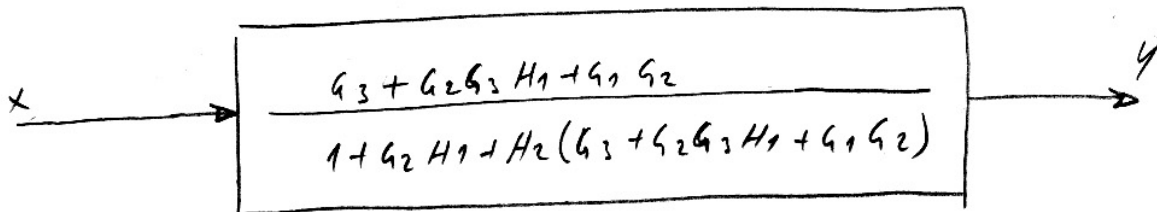 x
y
G3 + G2G3 H1 + G1 G2
1 + G2 H1 + H2 (G3 + G2G3H1 + G1 G2)